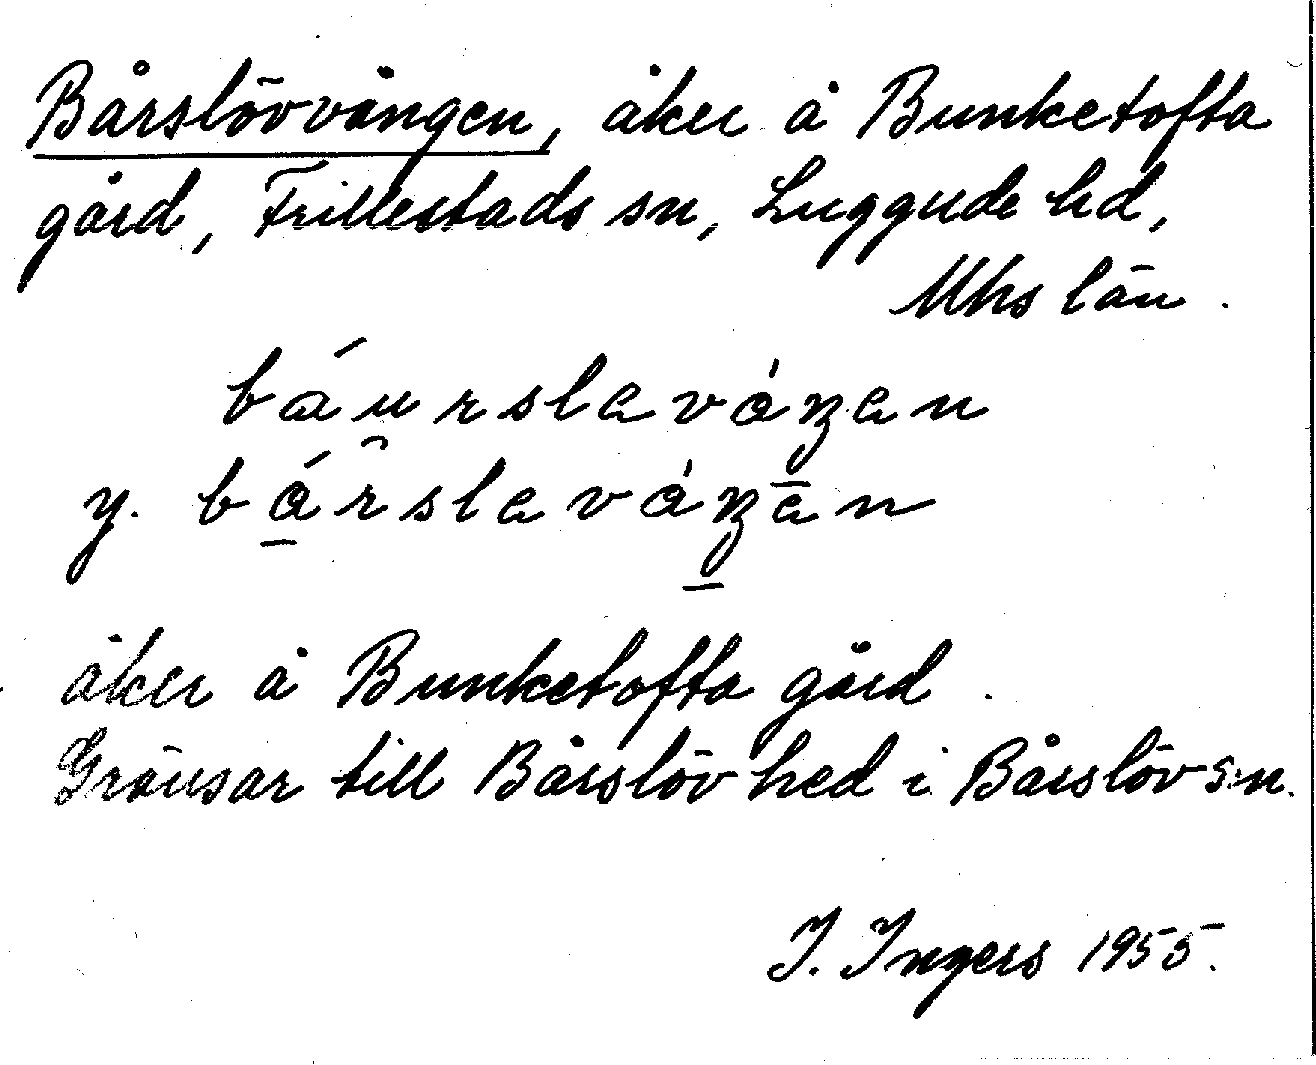 Bårslövvången, åker å Bunketofta
gård, Frillestads sn, Luggude hd,
Mhs län.
báurslaváŋan
y. bá̱r̂slaváŋ̱ān
åker å Bunketofta gård.
Gränsar till Bårslöv hed i Bårslöv s:n.
I. Ingers 1955.